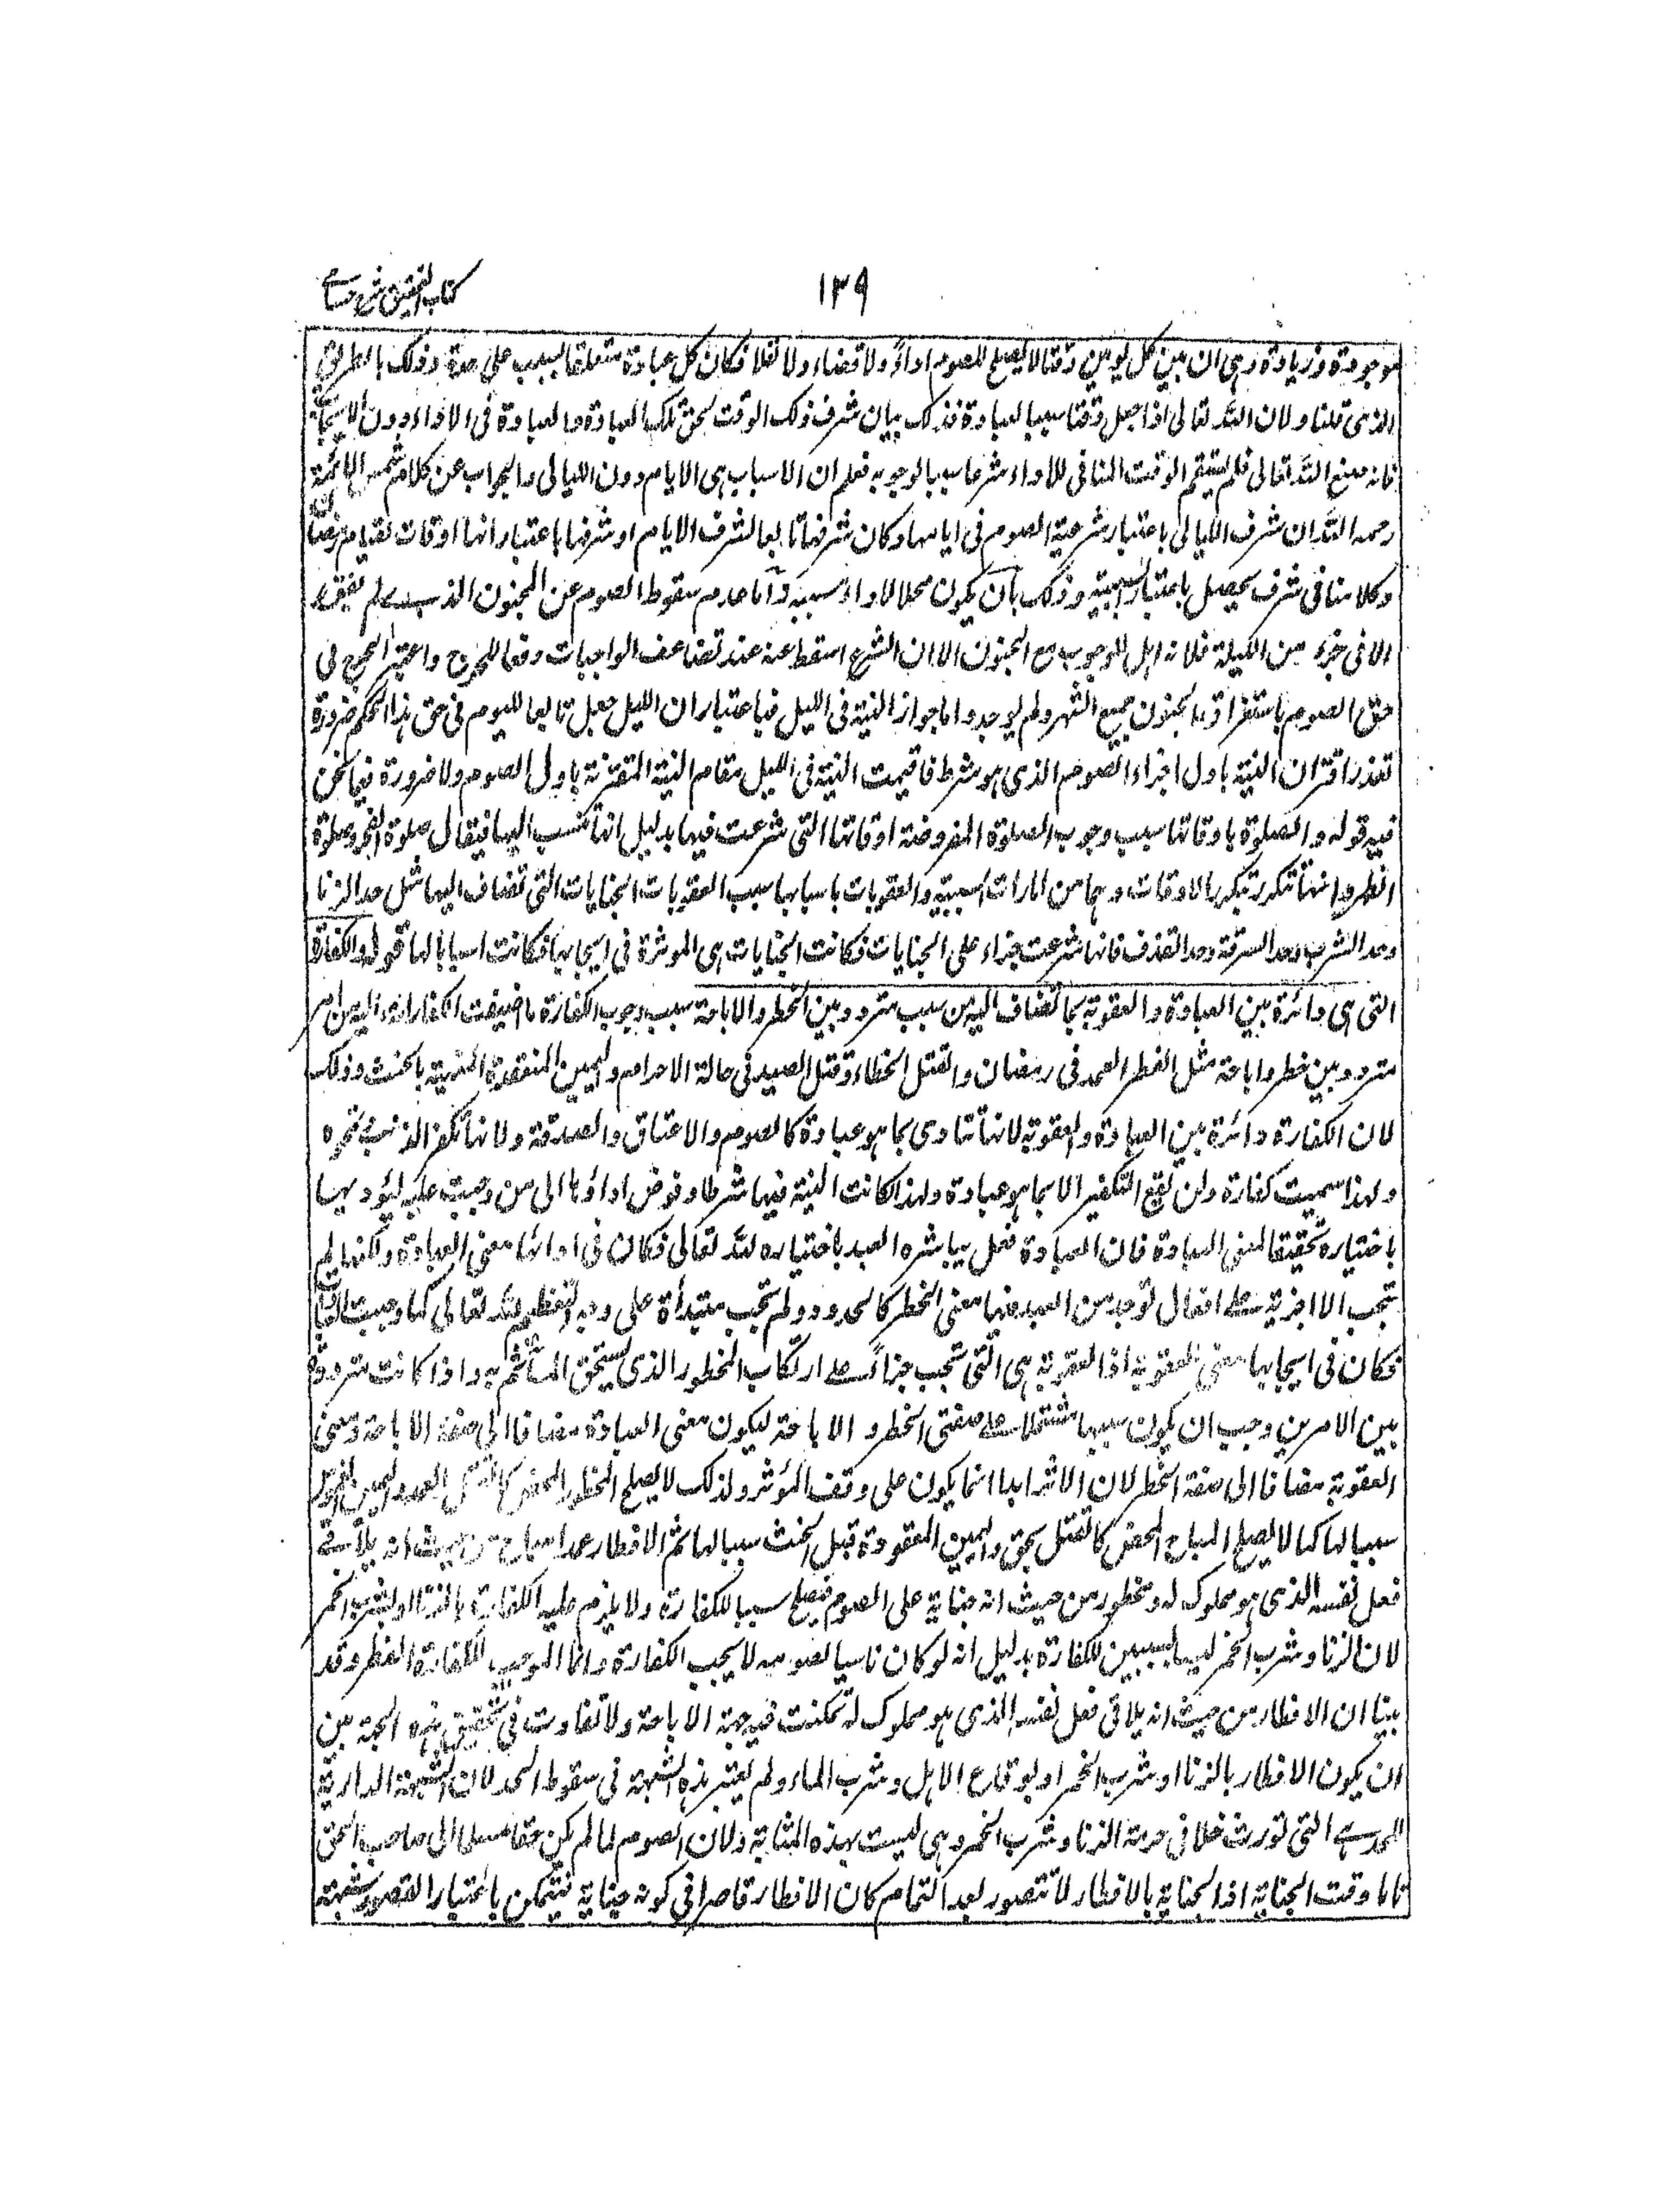 كتاب التحقيق شرح حسامي
١٣٩
موجودة وزيادة وهي ان بين كل يومين وقتا لا يصلح للصوم اداءً ولا قضاء ولا نفلا فكان كل عبادة متعلقا بسبب على حدة وذلك بالطريق
الذي قلنا ولان الله تعالى اذا جعل وقتا سببا لعبادة فذلك بيان شرف ذلك الوقت لحق تلك العبادة والعبادة في الاداء دون الايجاب
فانه صنع الله تعالى فلم يستقم الوقت المنافي للاداء شرعا سببا لوجوبه فعلم ان الاسباب هي الايام دون الليالي والجواب عن كلام شمس الائمة
رحمه الله ان شرف الليالي باعتبار شرعية الصوم في ايامها وكان شرفها تابعا لشرف الايام او شرفها باعتبار انها اوقات لقيام رمضان
وكلامنا في شرف يحصل باعتبار السببية وذلك بان يكون محلا لاداء مسببه وأما عدم سقوط الصوم عن المجنون الذي لم يفق
الا في جزء من الليلة فلانه اهل للوجوب مع الجنون الا ان الشرع اسقط عنه عند تضاعف الواجبات دفعا للحرج واعتبر الحرج في
حق الصوم باستغراق الجنون جميع الشهر ولم يوجد واما جواز النية في الليل فباعتبار ان الليل جعل تابعا لليوم في حق هذا الحكم ضرورة
تعذر اقتران النية باول اجزاء الصوم الذي هو شرط فاقيمت النية في الليل مقام النية المقترنة باول الصوم ولا ضرورة فيما نحن
فيه قوله والصلوة باوقاتها سبب وجوب الصلوة المفروضة اوقاتها التي شرعت فيها بدليل انها تنسب اليها فيقال صلوة الفجر وصلوة
الظهر وانها تتكرر بتكرر الاوقات وهما من امارات السببية والعقوبات باسبابها سبب العقوبات الجنايات التي تضاف اليها مثل حد الزنا
وحد الشرب وحد السرقة وحد القذف فانها شرعت جزاء على الجنايات فكانت الجنايات هي المؤثرة في ايجابها فكانت اسبابا لها قوله والكفارة
التي هي دائرة بين العبادة والعقوبة بما تضاف اليه من سبب متردد بين الحظر والاباحة سبب وجوب الكفارة ما اضيفت الكفارة اليه من امر
متردد بين حظر واباحة مثل الفطر العمد في رمضان والقتل الخطاء وقتل الصيد في حالة الاحرام واليمين المنعقدة المنتهية بالحنث وذلك
لان الكفارة دائرة بين العبادة والعقوبة لانها تتادى بما هو عبادة كالصوم والاعتاق والصدقة ولانها تكفر الذنب وتمحوه
ولهذا سميت كفارة ولن تقع التكفير الا بما هو عبادة ولهذا كانت النية فيها شرطا وفوض اداؤها الى من وجبت عليه ليؤديها
باختياره تحقيقا لمعنى العبادة فان العبادة فعل يباشره العبد باختياره لله تعالى فكان في ادائها معنى العبادة ولكنها لم
تجب الا اجزية على افعال توجد من العبد فيها معنى الحظر كالحدود ولم تجب مبتدأة على وجه التعظيم لله تعالى كما وجبت
فكان في ايجابها معنى العقوبة اذ العقوبة هي التي تجب جزاءً على ارتكاب المحظور الذي يستحق المأثم به واذا كانت مترددة
بين الامرين وجب ان يكون سببها مشتملا على صفتي الحظر والاباحة ليكون معنى العبادة مضافا الى صفة الاباحة ومعنى
العقوبة مضافا الى صفة الحظر لان الاثر ابدا انما يكون على وفق المؤثر ولذلك لا يصلح المحظور المحض كالقتل العمد واليمين الغموس
سببا لها كما لا يصلح المباح المحض كالقتل بحق واليمين المعقودة قبل الحنث سببا لها ثم الافطار عمدا مباح من حيث انه يلاقي
فعل نفسه الذي هو مملوك له ومحظور من حيث انه جناية على الصوم فيصلح سببا للكفارة ولا يلزم عليه الكفارة بالزنا او بشرب الخمر
لان الزنا وشرب الخمر ليسا بسببين للكفارة بدليل انه لو كان ناسيا لصومه لا يجب الكفارة وانما الموجب للكفارة الفطر وقد
بينا ان الافطار من حيث انه يلاقي فعل نفسه الذي هو مملوك له تمكنت فيه جهة الاباحة ولا تفاوت في تحقيق هذه الجهة بين
ان يكون الافطار بالزنا او شرب الخمر او بوقاع الاهل وشرب الماء ولم يعتبر هذه الشبهة في سقوط الحد لان الشبهة الدارئة
للحد هي التي تورث خللا في حرمة الزنا وشرب الخمر وهي ليست بهذه المثابة ولان الصوم لما لم يكن حقا مسلما الى صاحب الحق
تاما وقت الجناية اذ الجناية بالافطار لا تتصور بعد التمام كان الافطار قاصرا في كونه جناية فتتمكن باعتبار القصور شبهة